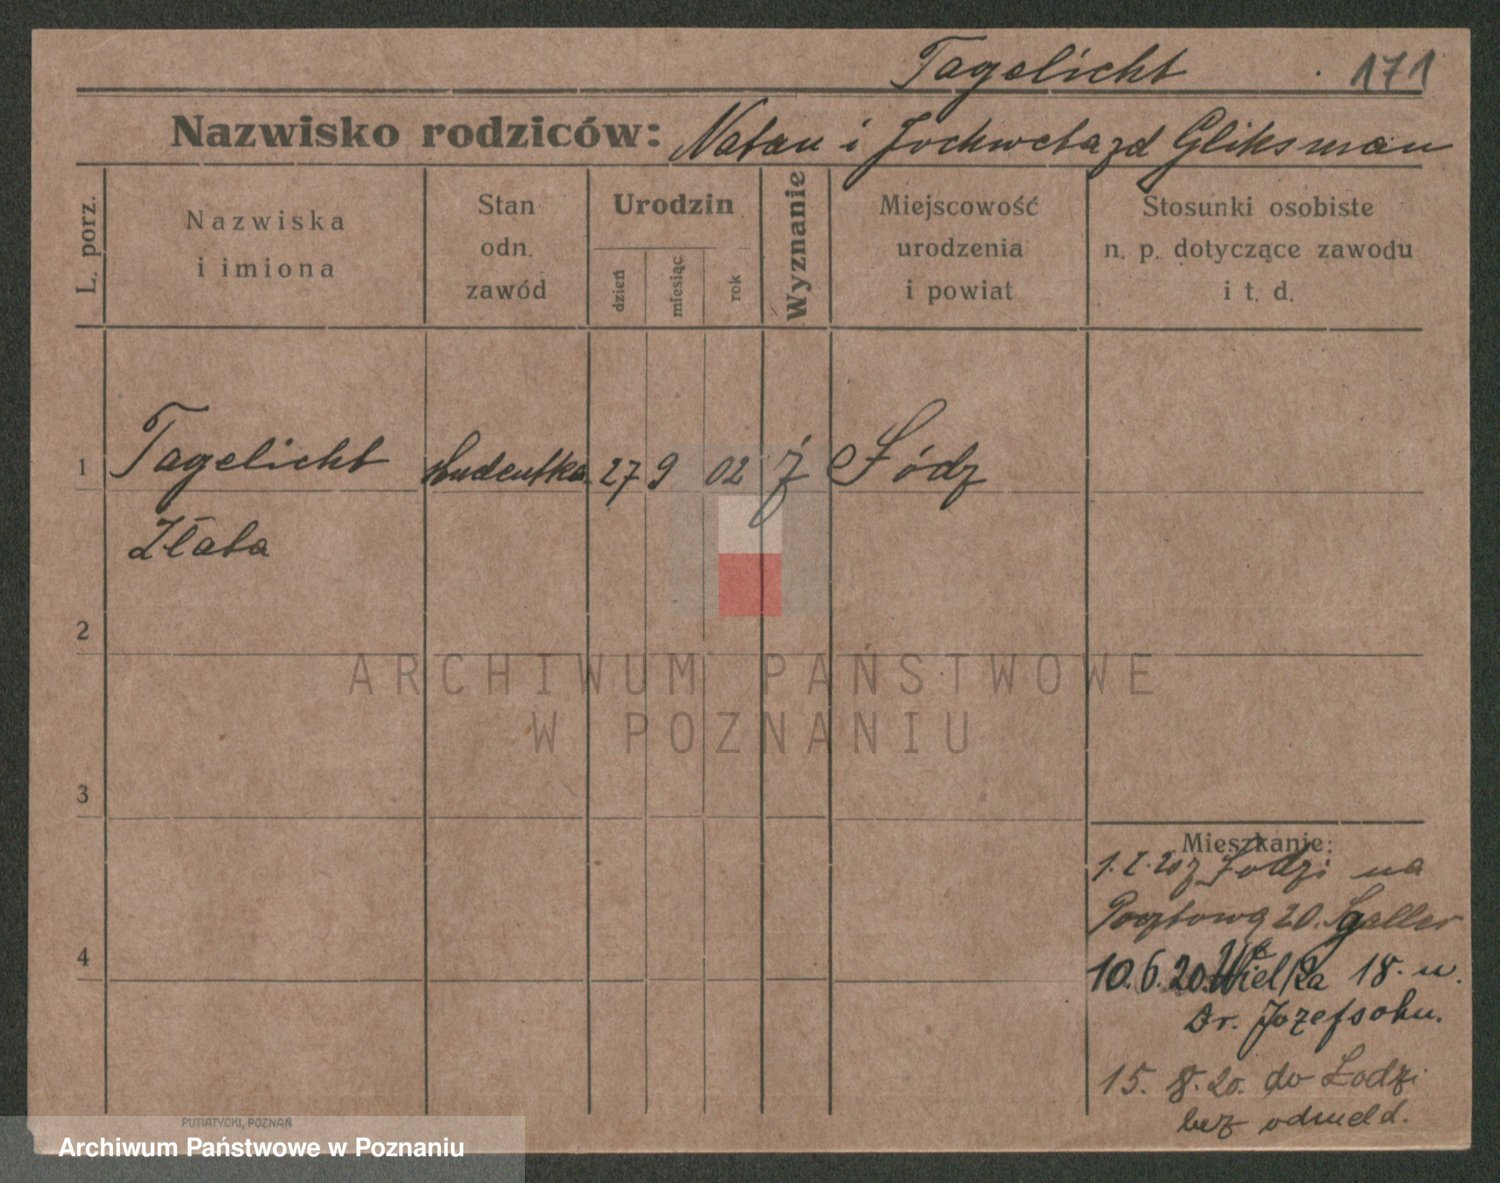 Tagelicht 171
Nazwisko rodziców: Natan i Jochweta zd Gliksman
L. porz.
Nazwiska
i imiona
Stan
odn.
zawód
Urodzin
dzień
miesiąc
rok
Wyznanie
Miejscowość
urodzenia
i powiat
Stosunki osobiste
n. p. dotyczące zawodu
i t. d.
1 Tagelicht studentka 27 9 02 ż Łódz
Złata
2
ARCHIWUM PAŃSTWOWE
W POZNANIU
3
Mieszkanie:
z Łodzi na
Pocztową 20.
4
10.6.20. Wielka 18. u.
Dr. Jozefsohn.
15. 8. 20. do Lodzi
bez odmeld.
PUTIATYCKI, POZNAŃ
Archiwum Państwowe w Poznaniu